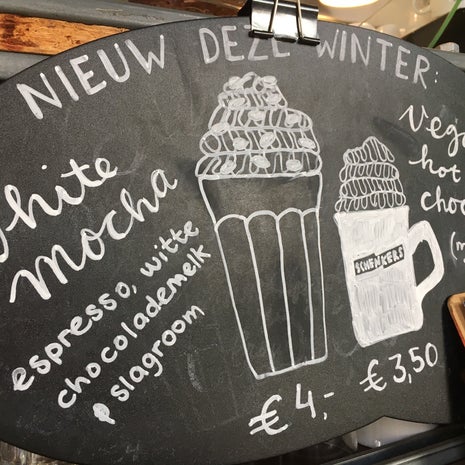 NIEUW DEZE WINTER:
white
mocha
espresso, witte
chocolademelk
slagroom
€ 4,-
SCHENKERS
hot
€ 3,50